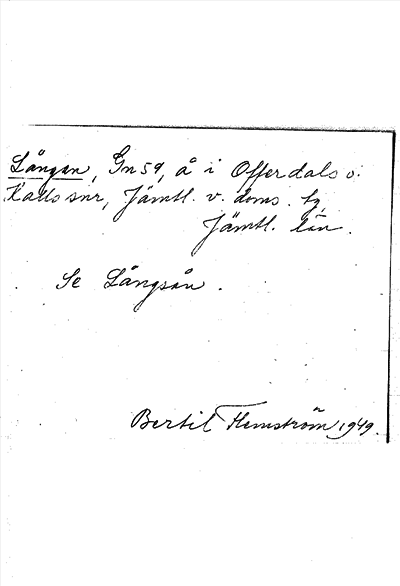 Långan, Gn59, å i Offerdals o.
Kalls snr, Jämtl. v. doms. tg,
Jämtl. län.
Se Långsån.
Bertil Flemström 1949.